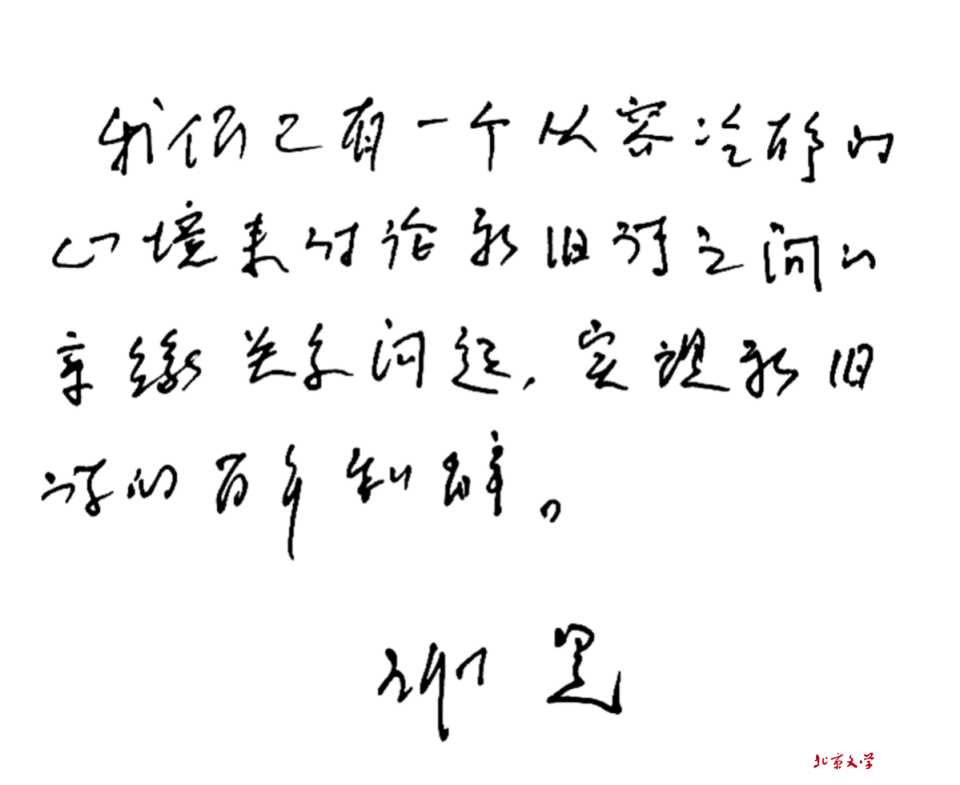 我们已有一个从容冷静的
心境来讨论新旧诗之间的
亲缘关系问题,实现新旧
诗的百年和解。
谢冕
北京文学